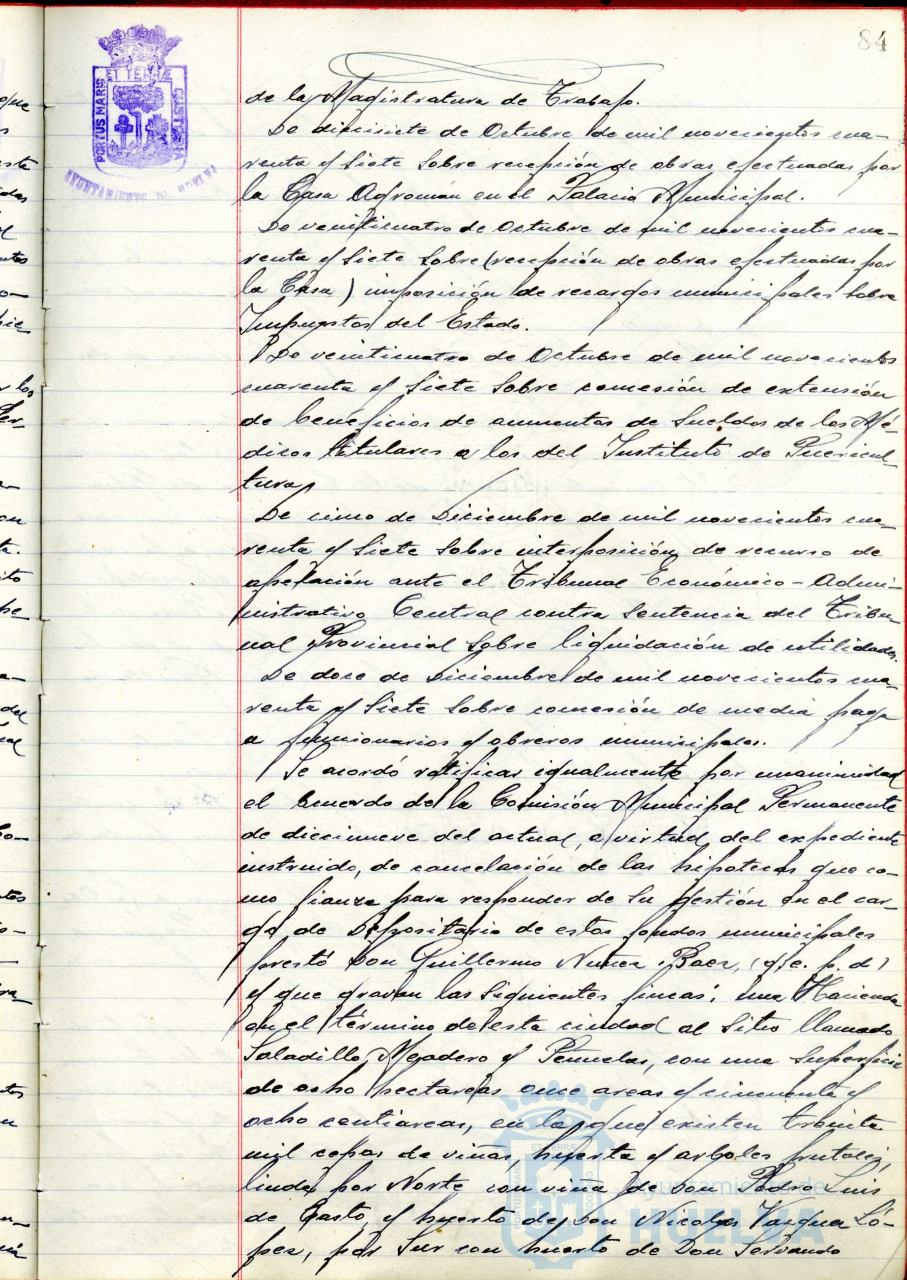 84
PORTUS MARIS ET TERRÆ CUSTODIA
AYUNTAMIENTO DE HUELVA
de la Magistratura de Trabajo.
De diecisiete de Octubre de mil novecientos cua-
renta y Siete Sobre recepción de obras efectuadas por
la Casa Agromán en el Palacio Municipal.
De veinticuatro de Octubre de mil novecientos cua-
renta y Siete Sobre (recepción de obras efectuadas por
la Casa) imposición de recargos municipales sobre
Impuestos del Estado.
De veinticuatro de Octubre de mil novecientos
cuarenta y Siete Sobre concesión de extensión
de beneficios de aumentos de Sueldos de los Mé-
dicos titulares a los del Instituto de Puericul-
tura,
De cinco de Diciembre de mil novecientos cua-
renta y Siete Sobre interposición de recurso de
apelación ante el Tribunal Económico-Admi-
nistrativo Central contra Sentencia del Tribu-
nal Provincial Sobre liquidación de utilidades.
De doce de Diciembre de mil novecientos cua-
renta y Siete Sobre concesión de media paga
a funcionarios y obreros municipales.
Se acordó ratificar igualmente por unanimidad
el acuerdo de la Comisión Municipal Permanente
de diecinueve del actual, a virtud del expediente
instruido, de cancelación de las hipotecas que co-
mo fianza para responder de Su gestión en el car-
go de Depositario de estos fondos municipales
prestó Don Guillermo Nuñez Baez, (q. e. p. d)
y que gravan las Siguientes fincas: una Hacienda
en el término de esta ciudad al Sitio llamado
Saladillo, Mejadero y Peñuelas, con una Superficie
de ocho hectareas once areas y cincuenta y
ocho centiareas, en la que existen treinta
mil cepas de viñas, huerta y arboles frutales,
linda por Norte con viña de Don Pedro Luis
de Casto, y huerto de Don Nicolas Vazquez Ló-
pez, por Sur con huerto de Don Servando
Ayuntamiento de
HUELVA